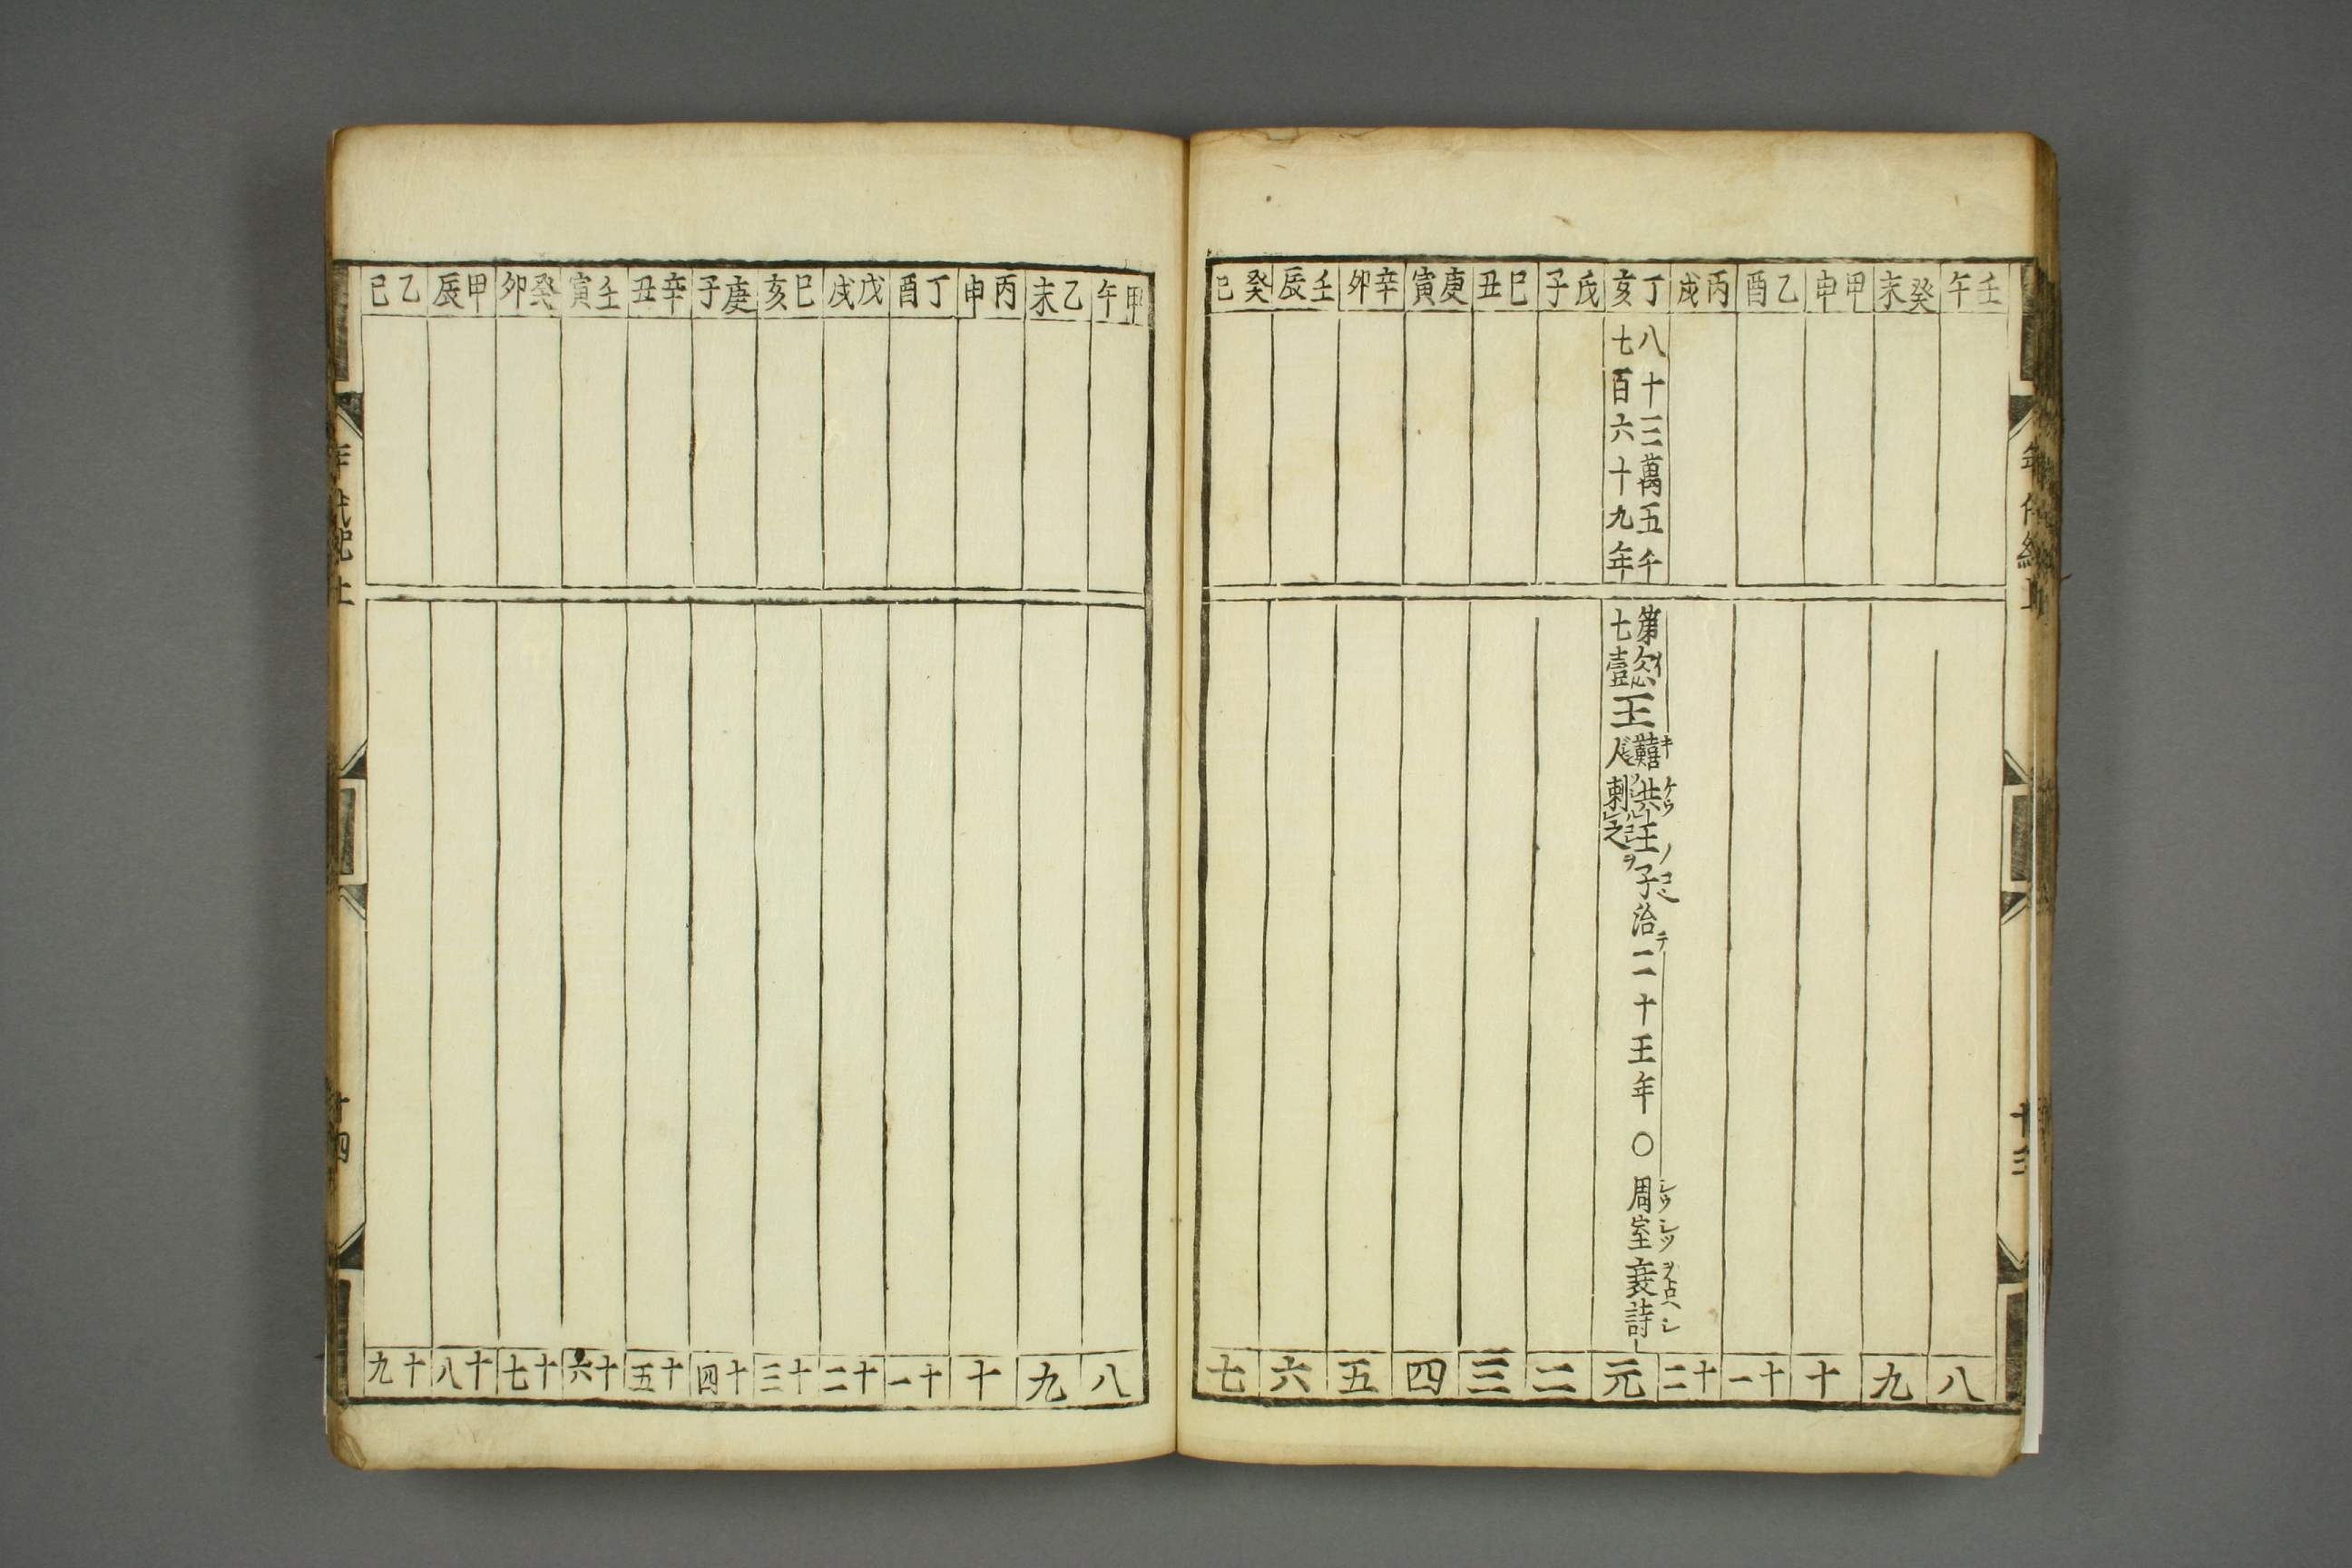 壬午
八
癸未
九
甲申
十
乙酉
十一
丙戌
十二
丁亥
八十三萬五千
七百六十九年
第七懿王囏洪王子治二十王年〇周室衰詩
人刺之
元
戊子
二
己丑
三
庚寅
四
辛卯
五
壬辰
六
癸巳
七
甲午
八
乙未
九
丙申
十
丁酉
十一
戊戌
十二
己亥
十三
庚子
十四
辛丑
十五
壬寅
十六
癸卯
十七
甲辰
十八
乙巳
十九
年代紀上
十四